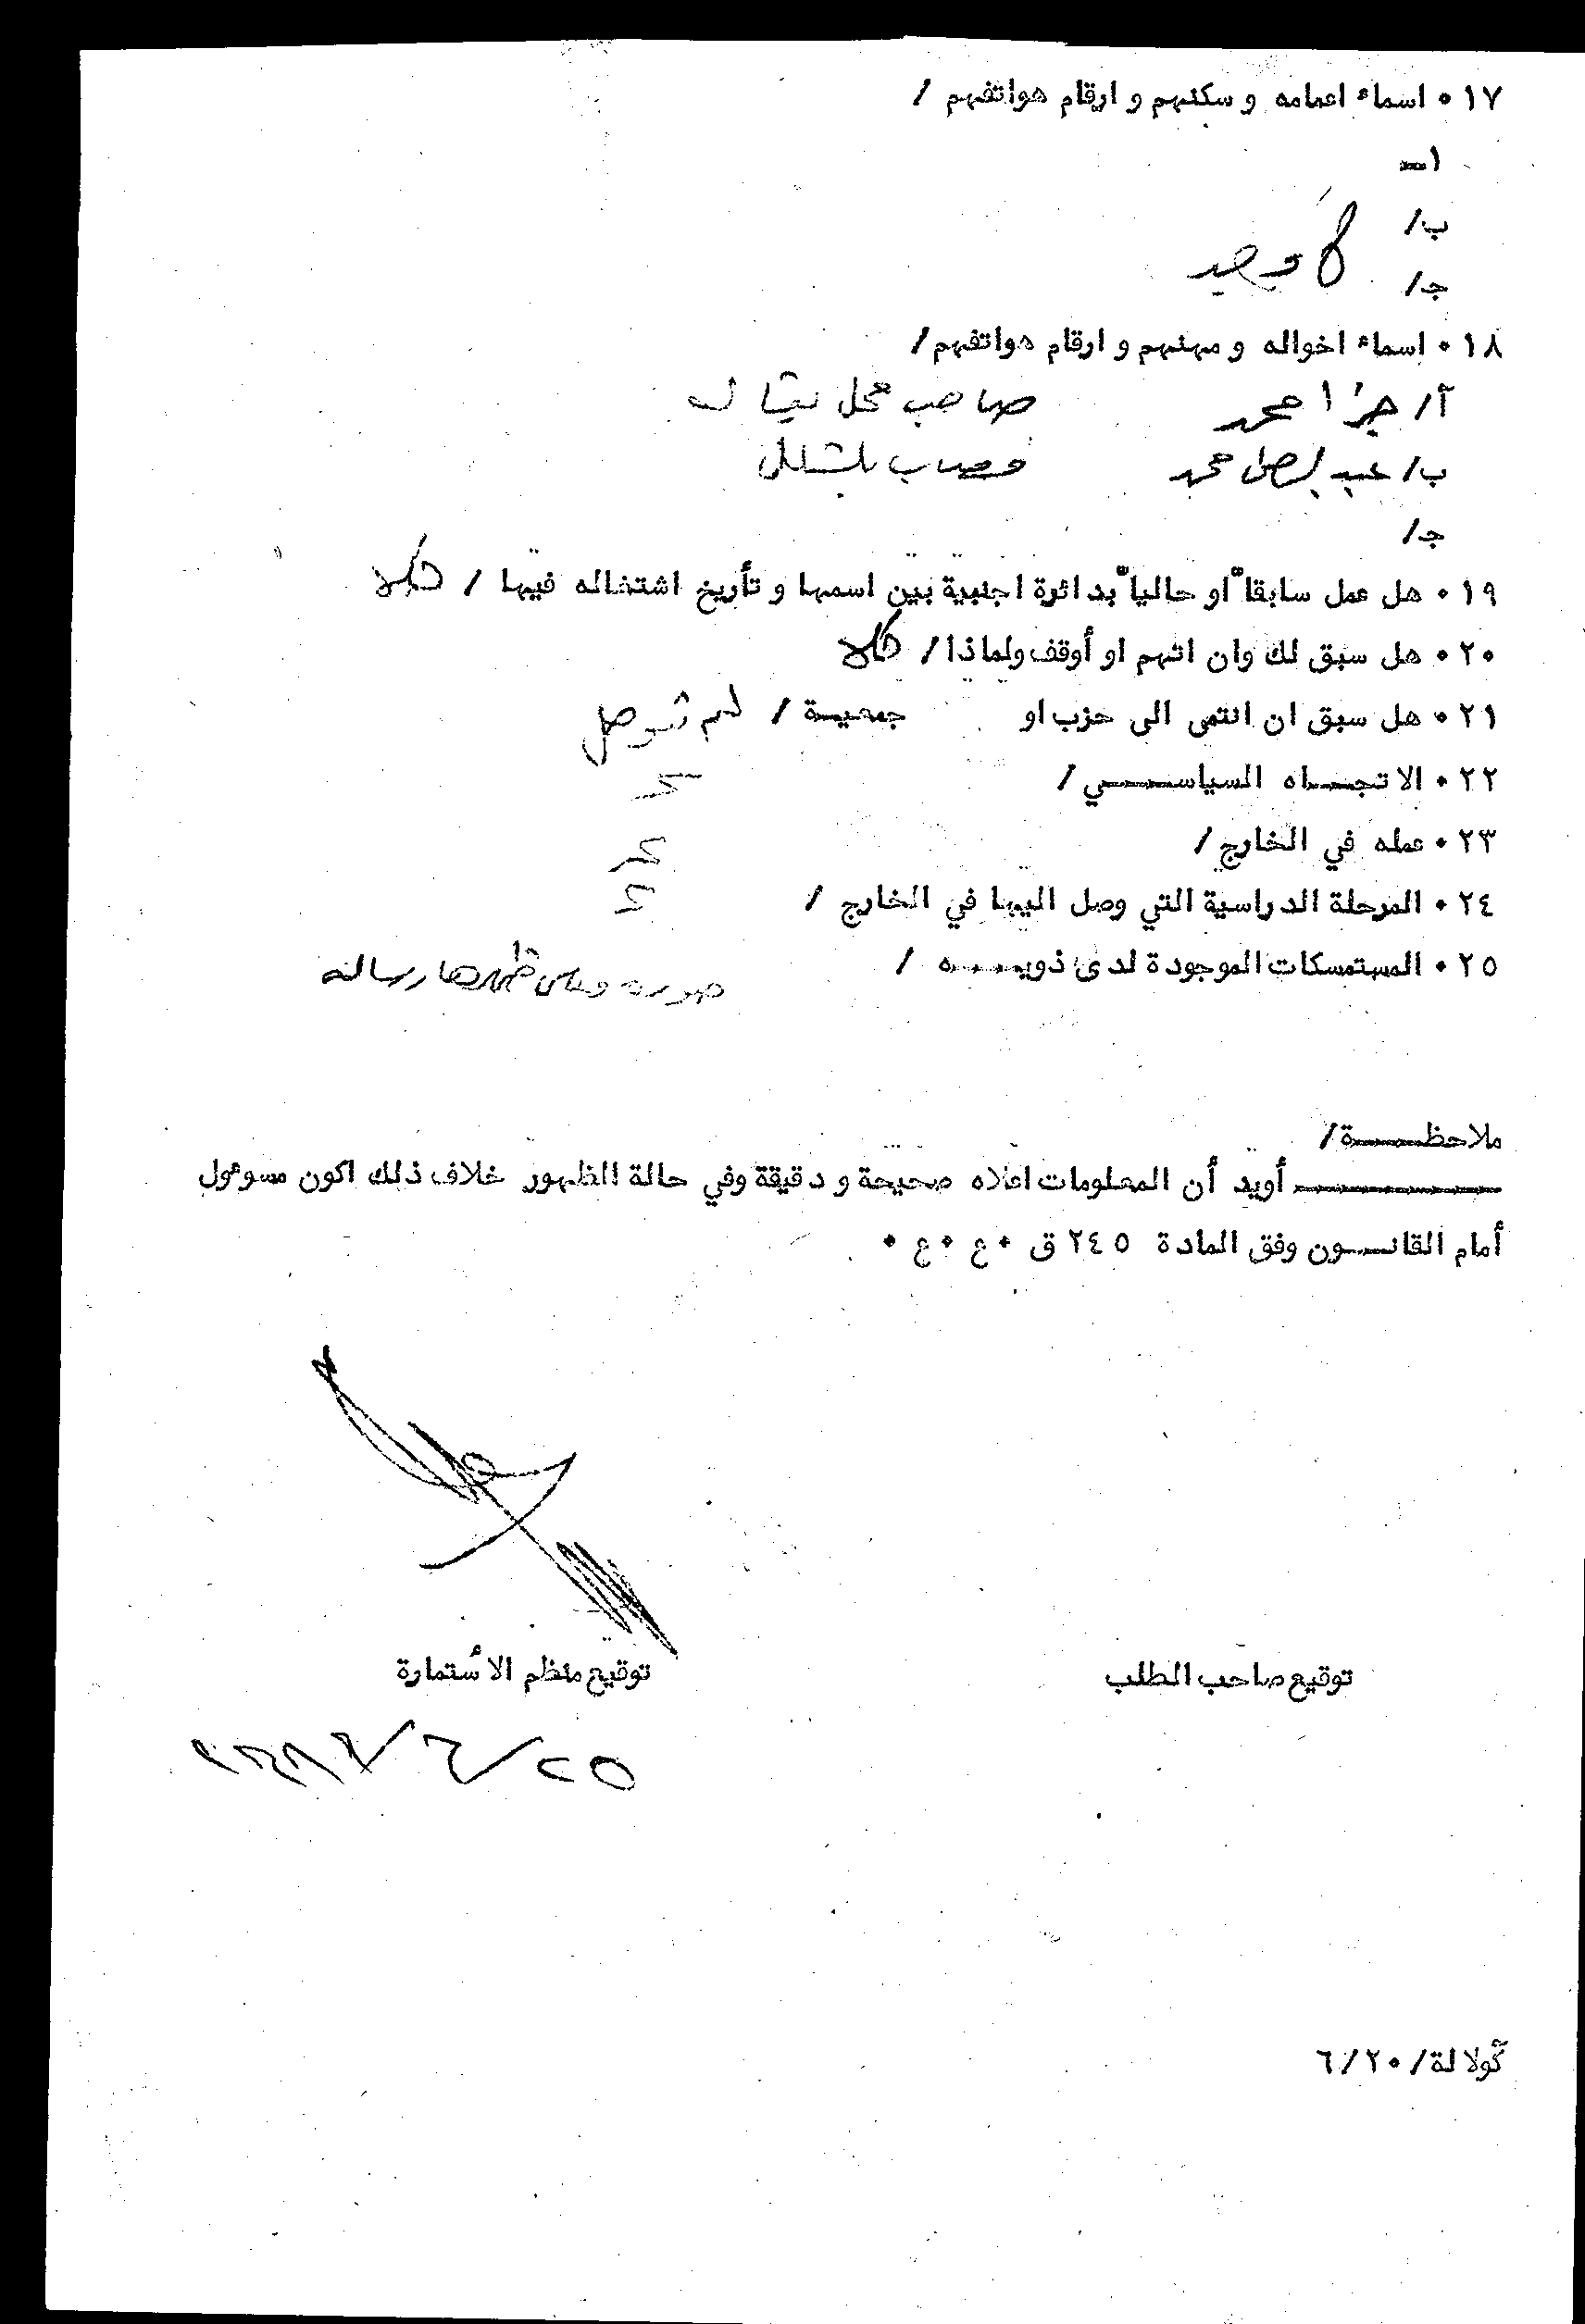 ١٧ • اسماء اعمامه و سكنهم و ارقام هواتفهم /
١ــ
ب/
ج/
لا يوجد
١٨ • اسماء اخواله و مهنهم و ارقام هواتفهم/
آ/ محمد صاحب محل
ب/ عبد محمد قصاب
ج/
١٩ • هل عمل سابقا" او حاليا" بدائرة اجنبية بين اسمها و تأريخ اشتغاله فيها / كلا
٢٠ • هل سبق لك وان اتهم او أوقف ولماذا / كلا
٢١ • هل سبق ان انتمى الى حزب او جمعية / لم
٢٢ • الاتجـــاه السياســـي /
٢٣ • عمله في الخارج /
٢٤ • المرحلة الدراسية التي وصل اليها في الخارج /
٢٥ • المستمسكات الموجودة لدى ذويـــه / صورة وعلى ظهرها رسالة
ملاحظـــة/
أويد أن المعلومات اعلاه صحيحة و دقيقة وفي حالة الظهور خلاف ذلك اكون مسوءول
أمام القانـــون وفق المادة ٢٤٥ ق • ع • ع •
توقيع صاحب الطلب توقيع منظم الاستمارة
٢٥/٦/
كولالة/٦/٢٠